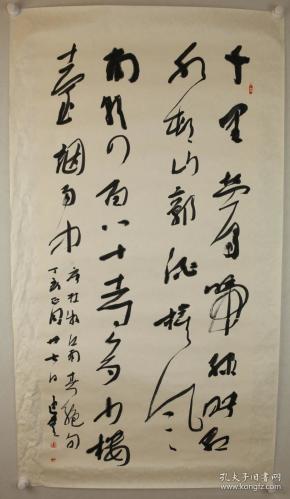 千里莺啼绿映红
水村山郭酒旗风
南朝四百八十寺多少楼
台烟雨中
唐杜牧江南春绝句
丁亥正月廿七日
孔夫子旧书网